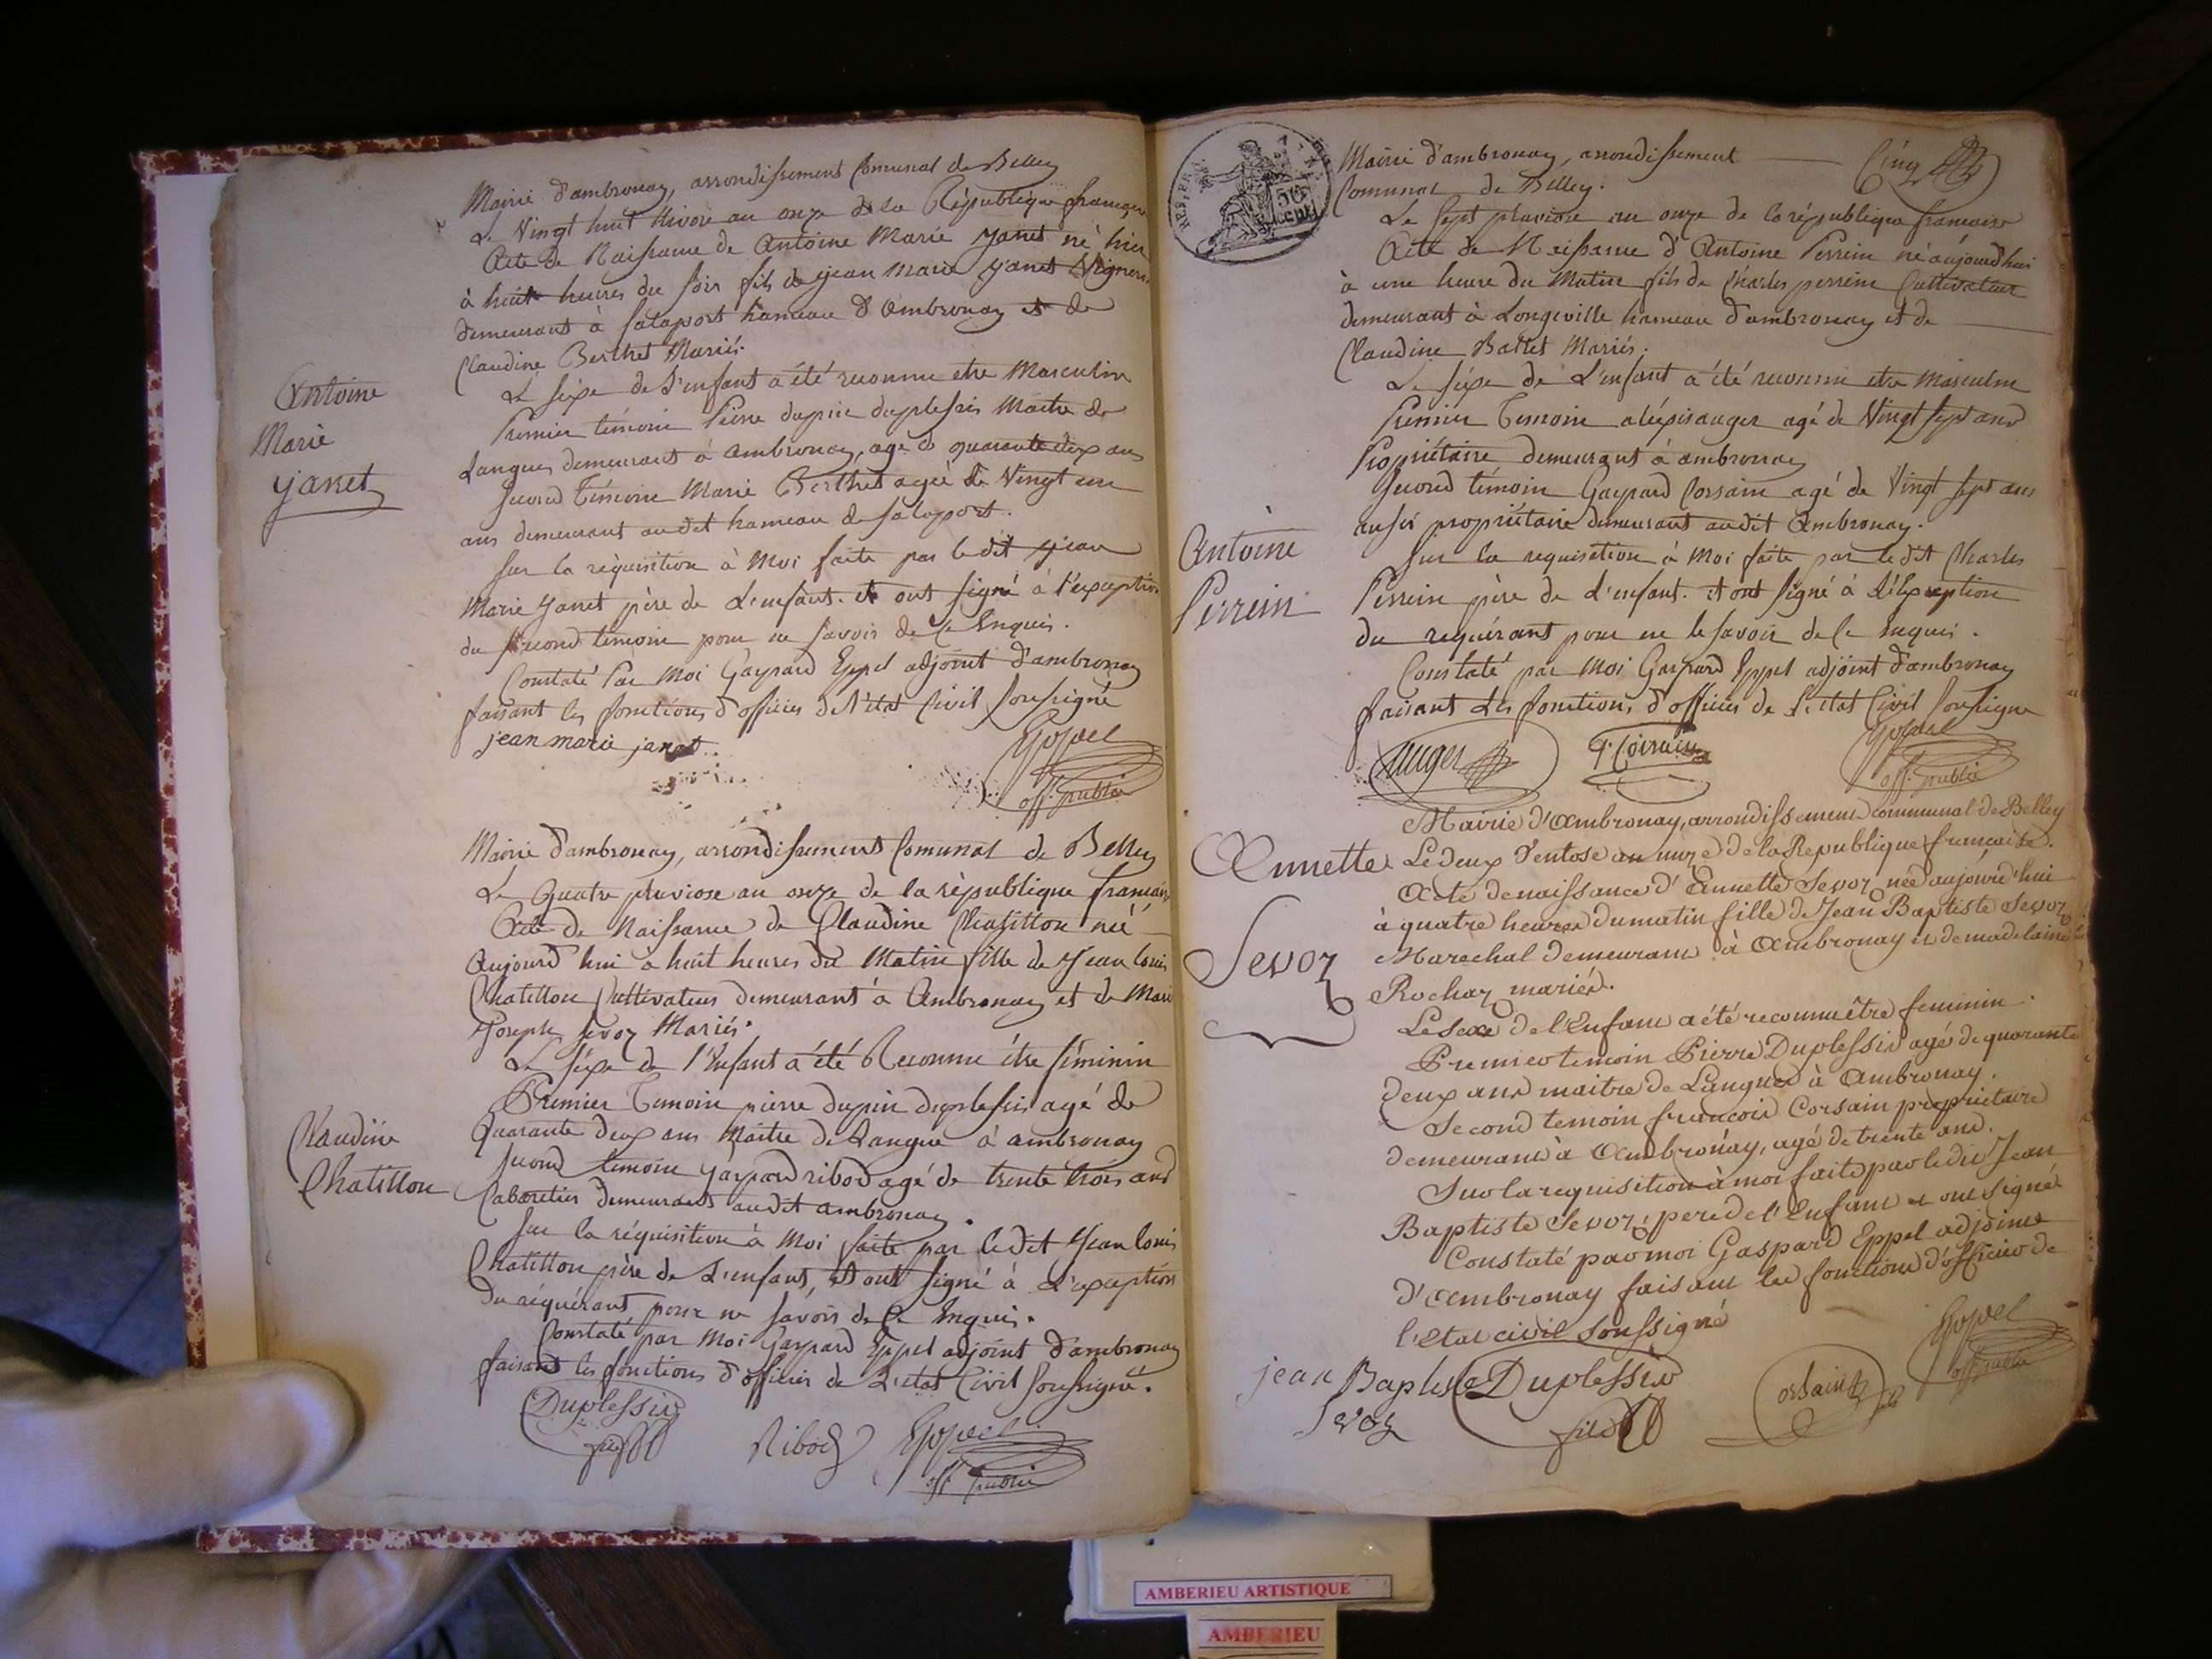 Mairie d'ambronay, arrondissement Comunal de Belley
Le Vingt huit Nivose an onze de la République française
Acte de Naissance de Antoine Marie Janet né hier
à huit heures du soir fils de jean Marie Janet Vigneron
demeurant à Salaport hameau d'Ambronay et de
Claudine Berthet Mariés.
Le sexe de L'enfant a été reconnu etre Masculin
Premier témoin Pierre dupin duplessis Maitre de
Langues demeurant à ambronay, agé de quarante deux ans
Second Témoin Marie Berthet agée de Vingt un
ans demeurant audit hameau de Salaport.
Sur la réquisition à Moi faite par ledit Jean
Marie Janet père de L'enfant. et ont signé à l'exception
du second témoin pour ne savoir de ce Enquis.
Constaté Par Moi Gaspard Eppel adjoint d'ambronay
faisant les fonctions d'officier de l'état Civil soussigné
jean marie janet
Eppel
off. public
Antoine
Marie
Janet
Mairie d'ambronay, arrondissement Comunal de Belley
Le Quatre pluviose an onze de la république francaise
Acte de Naissance de Claudine Chatillon née
Aujourd'hui a huit heures du Matin fille de Jean louis
Chatillon Cultivateur demeurant à Ambronay et de Marie
Joseph Sevoz Mariés.
Le sexe de l'Enfant a été Reconnu être féminin
Premier Temoin pierre dupin duplessis agé de
Quarante deux ans Maitre de Langue à ambronay
Second temoin gaspard ribod agé de trente trois ans
Cabaretier demeurant audit ambronay.
Sur la réquisition à Moi faite par ledit Jean louis
Chatillon père de L'enfant, et ont signé à L'exception
du réquérant pour ne savoir de ce Enquis.
Constaté par Moi Gaspard Eppel adjoint d'ambronay
faisant les fonctions d'officier de L'etat Civil soussigné.
Duplessis
fils
Ribod
Eppel
off. public
Claudine
Chatillon
50
cent
Mairie d'ambronay, arrondissement
Cinq
Comunal de Belley.
Le sept pluviose an onze de la république francaise
Acte de Naissance d'Antoine Perrin né aujourd'hui
à une heure du Matin fils de Charles perrin Cultivateur
demeurant à Longeville hameau d'ambronay et de
Claudine Ballet Mariés.
Le sexe de L'enfant a été reconnu etre Masculin
Premier Temoin aléxis auger agé de Vingt sept ans
Propriétaire demeurant à ambronay
Second témoin Gaspard Corsain agé de Vingt sept ans
aussi propriétaire demeurant audit Ambronay.
Sur la requisition à Moi faite par ledit Charles
Perrein père de L'enfant. et ont signé à L'Exception
du requérant pour ne le savoir de ce Enquis.
Constaté par Moi Gaspard Eppel adjoint d'ambronay
faisant Les fonctions d'officier de L'etat Civil soussigné
Auger
G. Corsain
Eppel
off. public
Antoine
Perrein
Mairie d'Ambronay, arrondissement communal de Belley
Le deux Ventose an onze de la Republique francaise.
Acte de naissance d'Annette Sevoz née aujourd'hui
à quatre heures du matin fille de Jean Baptiste Sevoz
Marechal demeurant à Ambronay et de madelaine
Rochaz mariés.
Le Sexe de l'Enfant a été reconnu être feminin.
Premier temoin Pierre Duplessis agé de quarante
deux ans maitre de Langues à Ambronay.
Second temoin francois Corsain propriétaire
demeurant à Ambronay, agé de trente ans.
Sur la requisition à moi faite par ledit Jean
Baptiste Sevoz, pere de l'Enfant et ont signé
Constaté par moi Gaspard Eppel adjoint
d'Ambronay faisant les fonctions d'officier de
l'etat civil soussigné
jean Baptiste
Sevoz
Duplessis
fils
Corsain
Eppel
off. public
Annette
Sevoz
AMBERIEU ARTISTIQUE
AMBERIEU